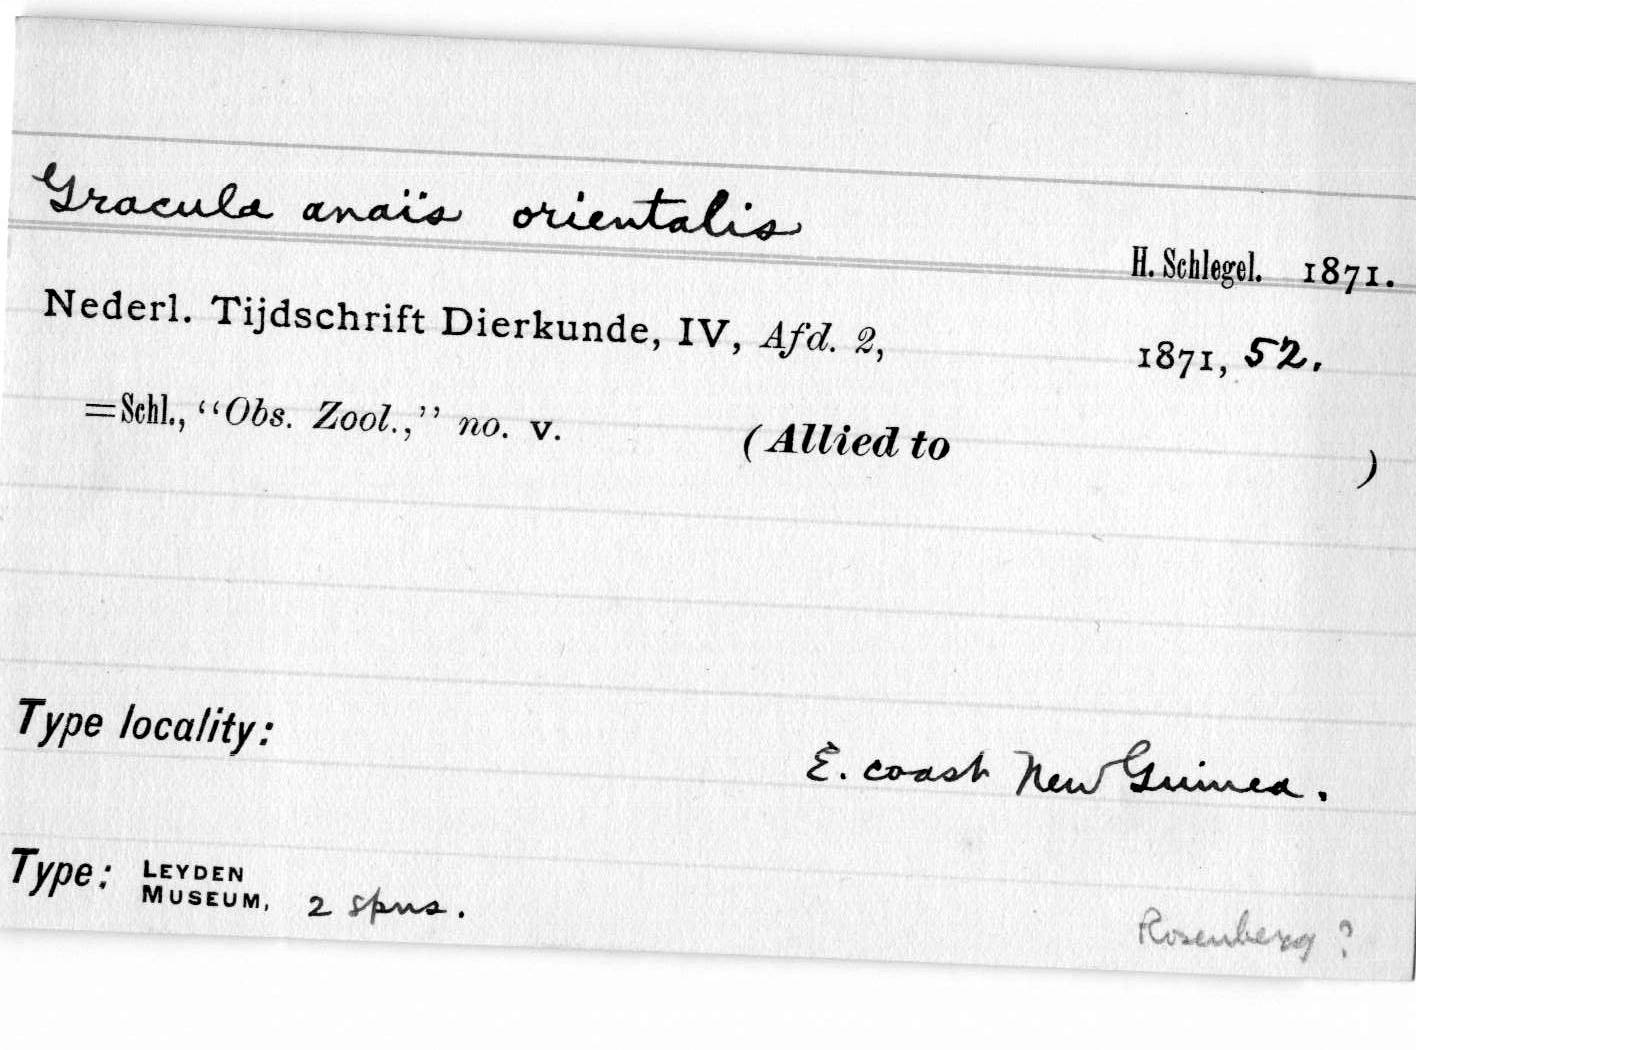 Gracula anaïs orientalis
H. Schlegel. 1871.
Nederl. Tijdschrift Dierkunde, IV, Afd. 2, 1871, 52.
=Schl., “Obs. Zool.,” no. v. (Allied to )
Type locality:
E. coast New Guinea.
Type: LEYDEN MUSEUM, 2 spns.
Rosenberg ?